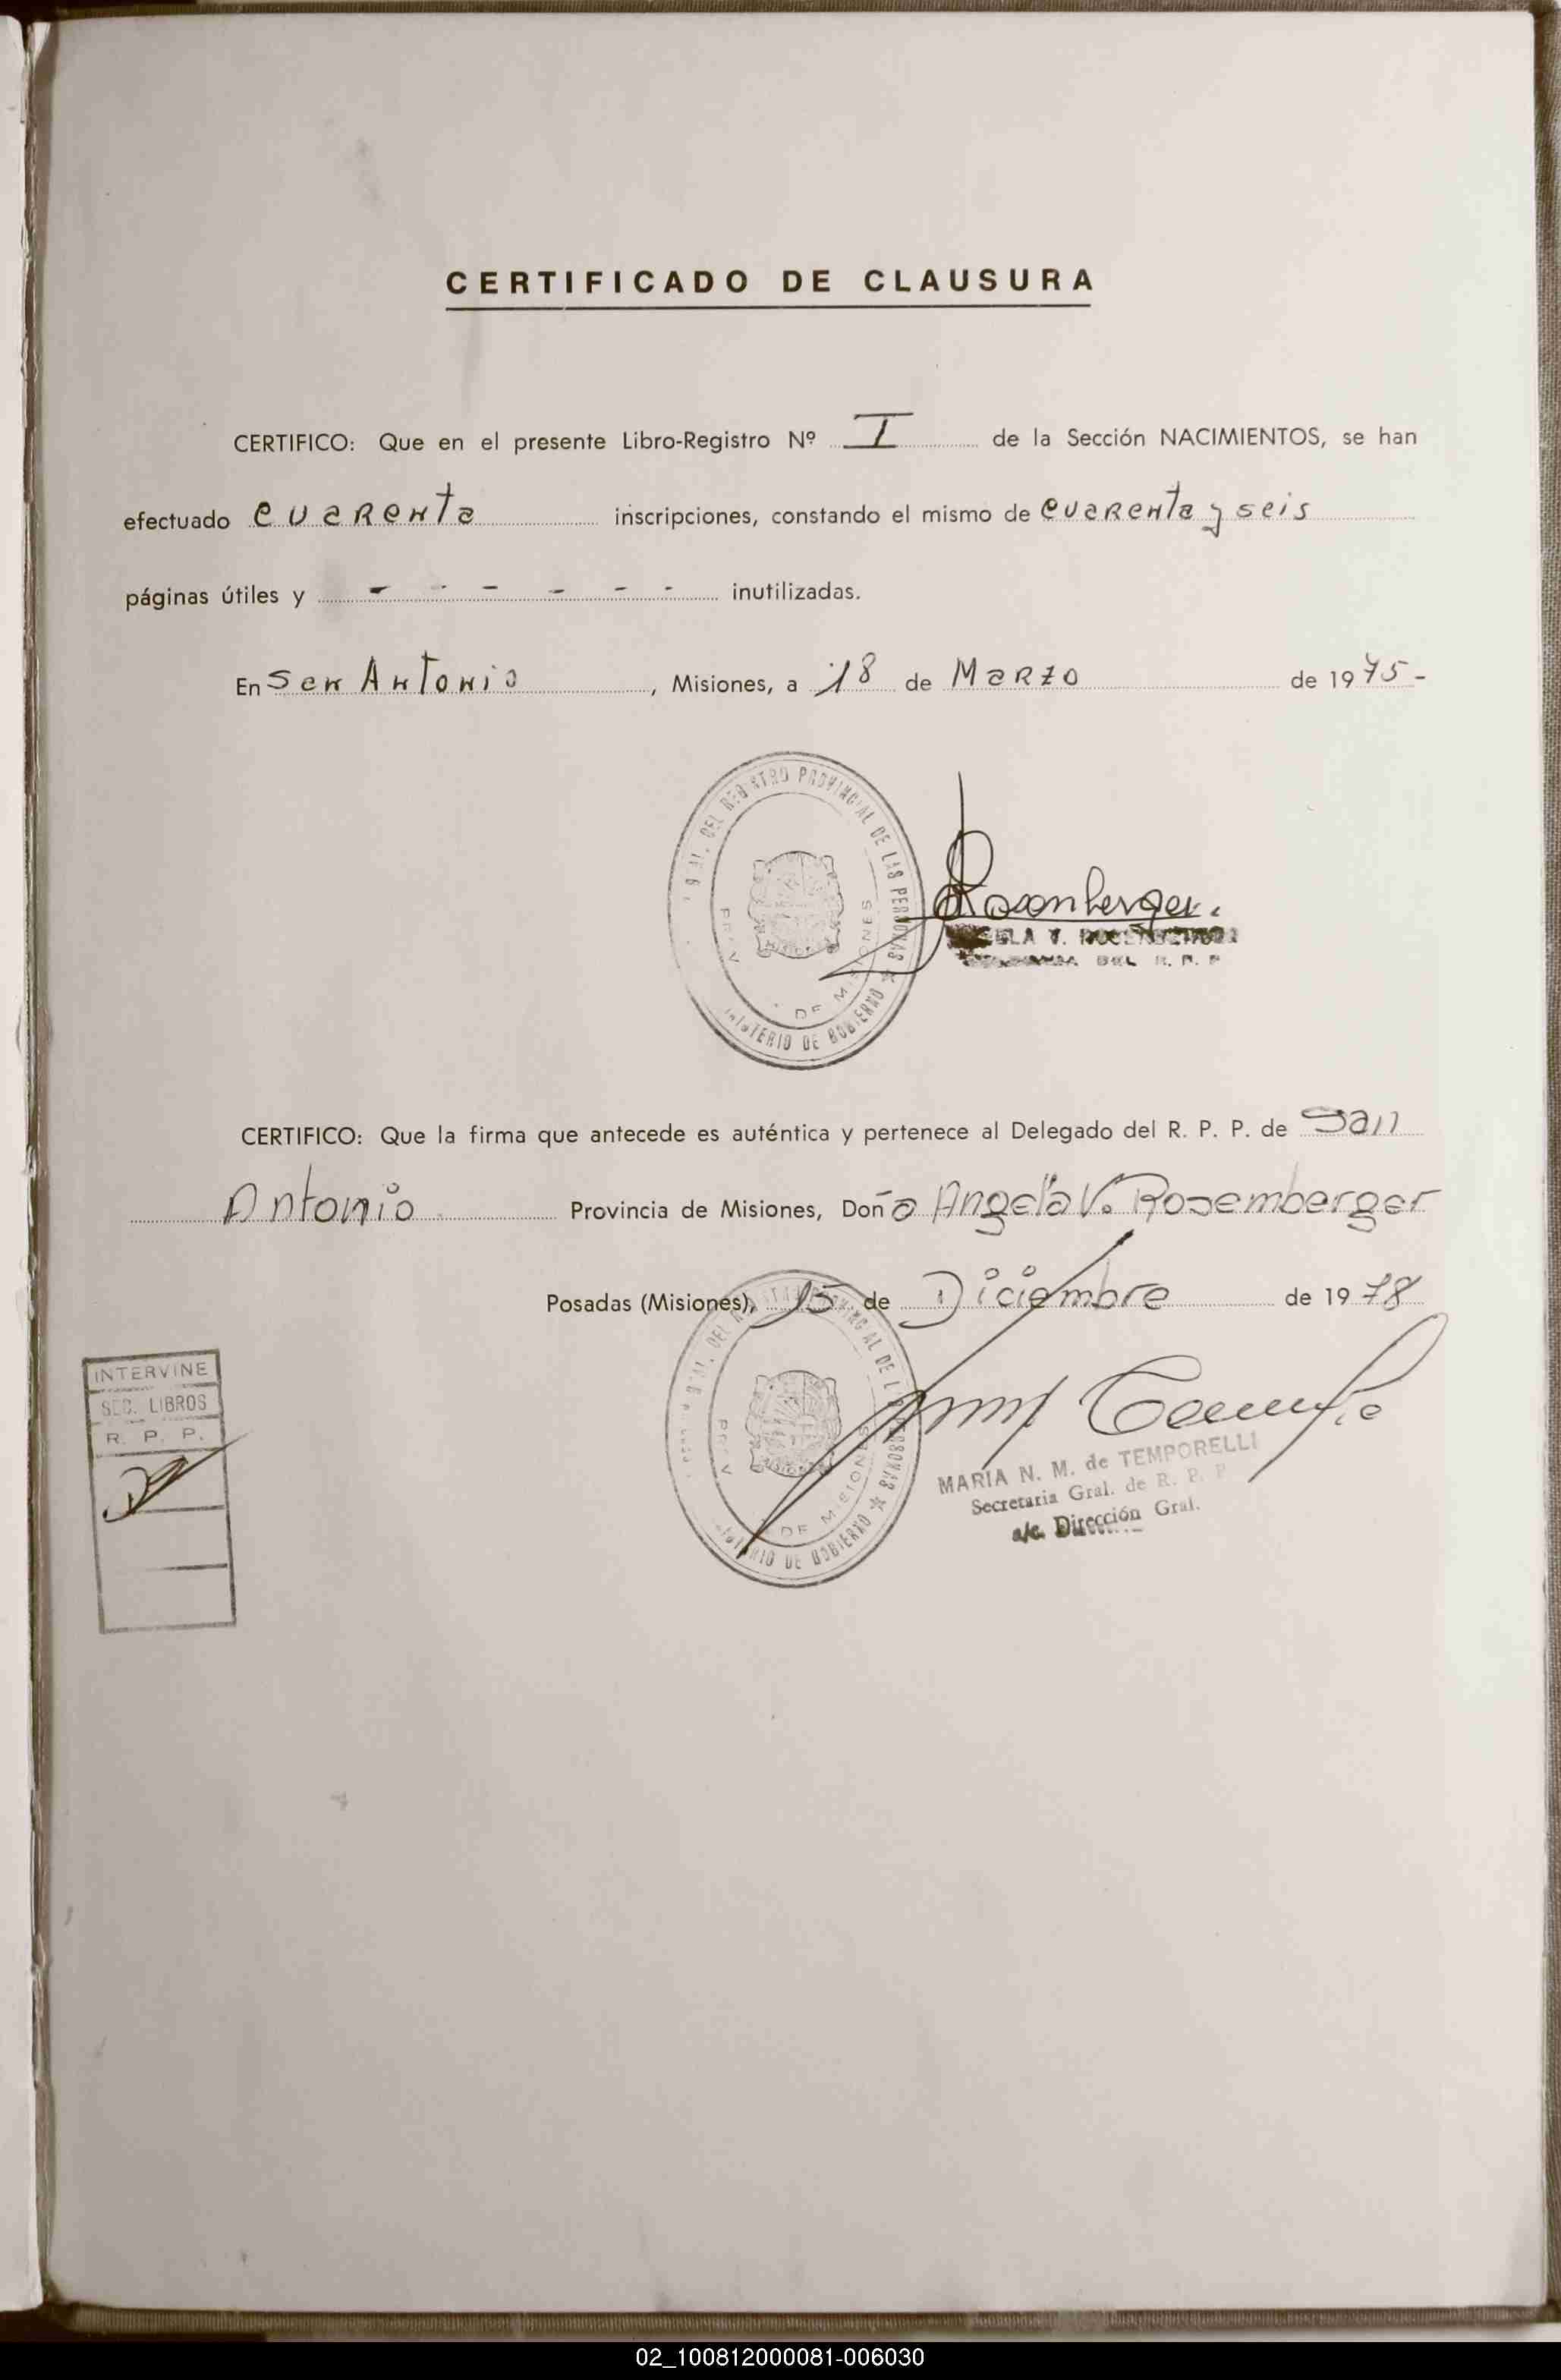 CERTIFICADO DE CLAUSURA
CERTIFICO: Que en el presente Libro-Registro Nº I de la Sección NACIMIENTOS, se han
efectuado cuarenta inscripciones, constando el mismo de cuarenta y seis
páginas útiles y - - - - - - inutilizadas.
En San Antonio, Misiones, a 18 de Marzo de 1975-
REGISTRO PROVINCIAL DE LAS PERSONAS
DE MISIONES
DE GOBIERNO
Rosenberger.
CERTIFICO: Que la firma que antecede es auténtica y pertenece al Delegado del R. P. P. de San
Antonio Provincia de Misiones, Doña Angela V. Rosemberger
Posadas (Misiones), 15 de Diciembre de 1978
INTERVINE
SEC. LIBROS
R. P. P.
DE MISIONES
DE GOBIERNO
MARIA N. M. de TEMPORELLI
Secretaria Gral. de R. P. P
a/c. Dirección Gral.
02_100812000081-006030